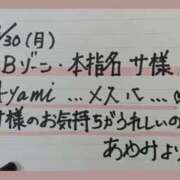 /30(月)
Bゾーン・本指名 サ様
Ayami...メスパ...
様のお気持ちがうれしいの
あゆみより